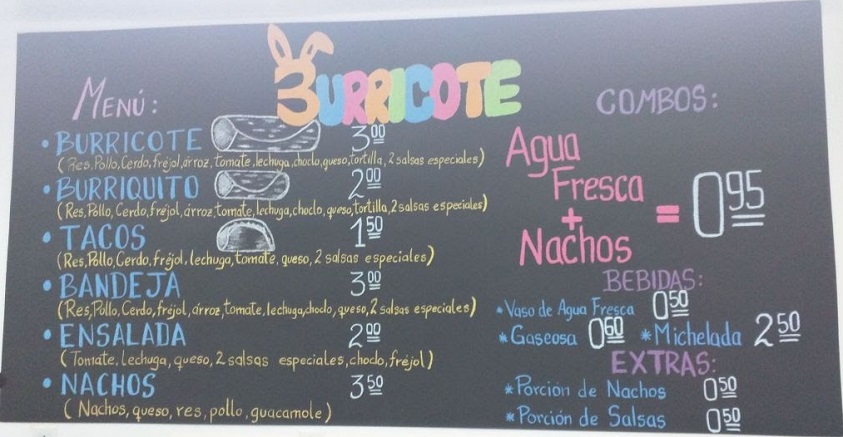 BURRICOTE
MENÚ:
• BURRICOTE 3.00
(Res, Pollo, Cerdo, fréjol, arroz, tomate, lechuga, choclo, queso, tortilla, 2 salsas especiales)
• BURRIQUITO 2.00
(Res, Pollo, Cerdo, frejol, arroz, tomate, lechuga, choclo, queso, tortilla, 2 salsas especiales)
• TACOS 1.50
(Res, Pollo, Cerdo, fréjol, lechuga, tomate, queso, 2 salsas especiales)
• BANDEJA 3.00
(Res, Pollo, Cerdo, fréjol, arroz, tomate, lechuga, choclo, queso, 2 salsas especiales)
• ENSALADA 2.00
(Tomate, Lechuga, queso, 2 salsas especiales, choclo, frejol)
• NACHOS 3.50
(Nachos, queso, res, pollo, guacamole)
COMBOS:
Agua
Fresca
+
Nachos
= 0.95
BEBIDAS:
*Vaso de Agua Fresca 0.50
*Gaseosa 0.60 *Michelada 2.50
EXTRAS:
*Porción de Nachos 0.50
*Porción de Salsas 0.50